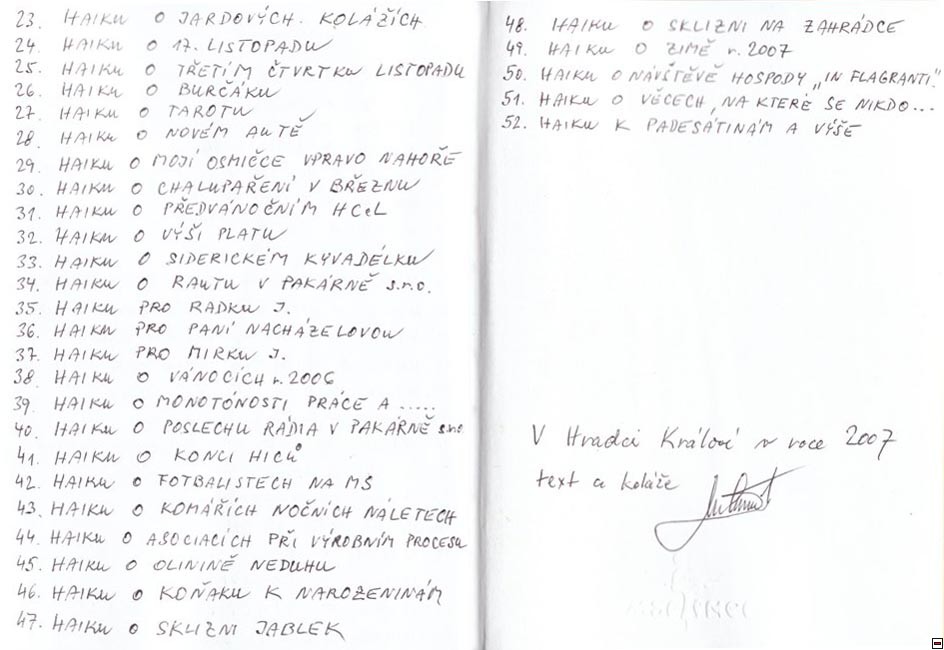 23. HAIKU O JARDOVÝCH KOLÁŽÍCH
24. HAIKU O 17. LISTOPADU
25. HAIKU O TŘETÍM ČTVRTKU LISTOPADU
26. HAIKU O BURČÁKU
27. HAIKU O TAROTU
28. HAIKU O NOVÉM AUTĚ
29. HAIKU O MOJÍ OSMIČCE VPRAVO NAHOŘE
30. HAIKU O CHALUPAŘENÍ V BŘEZNU
31. HAIKU O PŘEDVÁNOČNÍM HCeL
32. HAIKU O VÝŠI PLATU
33. HAIKU O SIDERICKÉM KYVADÉLKU
34. HAIKU O RAUTU V PAKÁRNĚ s.r.o.
35. HAIKU PRO RADKU J.
36. HAIKU PRO PANÍ NACHÁZELOVOU
37. HAIKU PRO MIRKU J.
38. HAIKU O VÁNOCÍCH r. 2006
39. HAIKU O MONOTÓNOSTI PRÁCE A .....
40. HAIKU O POSLECHU RÁDIA V PAKÁRNĚ s.r.o.
41. HAIKU O KONCI HICŮ
42. HAIKU O FOTBALISTECH NA MS
43. HAIKU O KOMÁŘÍCH NOČNÍCH NÁLETECH
44. HAIKU O ASOCIACÍCH PŘI VÝROBNÍM PROCESU
45. HAIKU O OLININĚ NEDUHU
46. HAIKU O KOŇAKU K NAROZENINÁM
47. HAIKU O SKLIZNI JABLEK
48. HAIKU O SKLIZNI NA ZAHRÁDCE
49. HAIKU O ZIMĚ r. 2007
50. HAIKU O NÁVŠTĚVĚ HOSPODY „IN FLAGRANTI"
51. HAIKU O VĚCECH, NA KTERÉ SE NIKDO...
52. HAIKU K PADESÁTINÁM A VÝŠE
V Hradci Králové v roce 2007
text a koláže